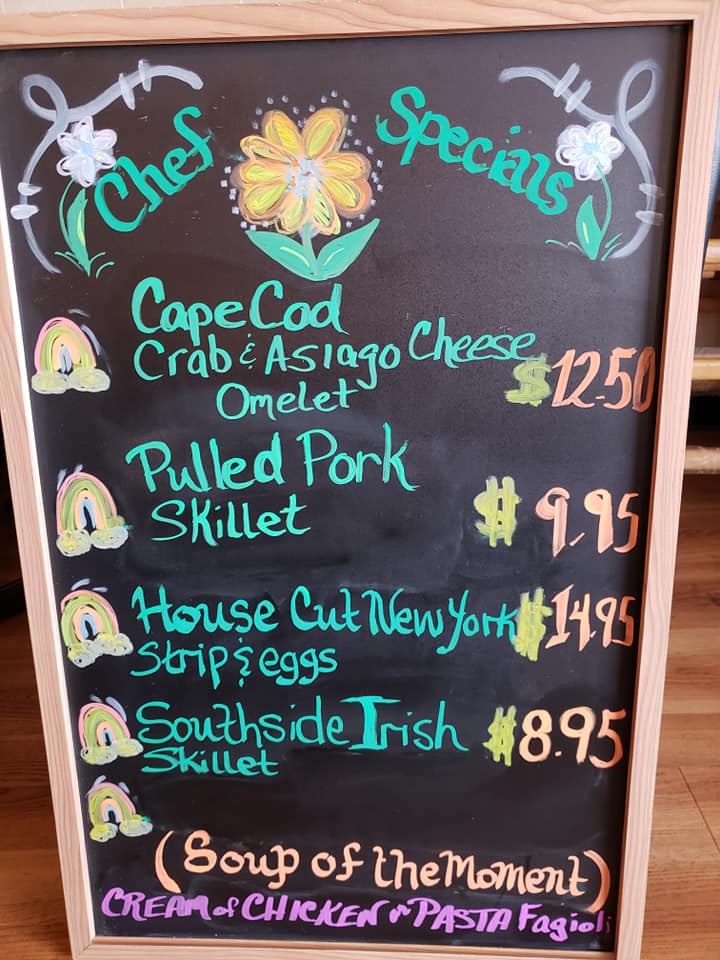 Chef Specials
Cape Cod
Crab & Asiago Cheese
Omelet $12.50
Pulled Pork
Skillet $9.95
House Cut New York $14.95
Strip & eggs
Southside Irish $8.95
Skillet
(Soup of the Moment)
CREAM of CHICKEN or PASTA Fagioli